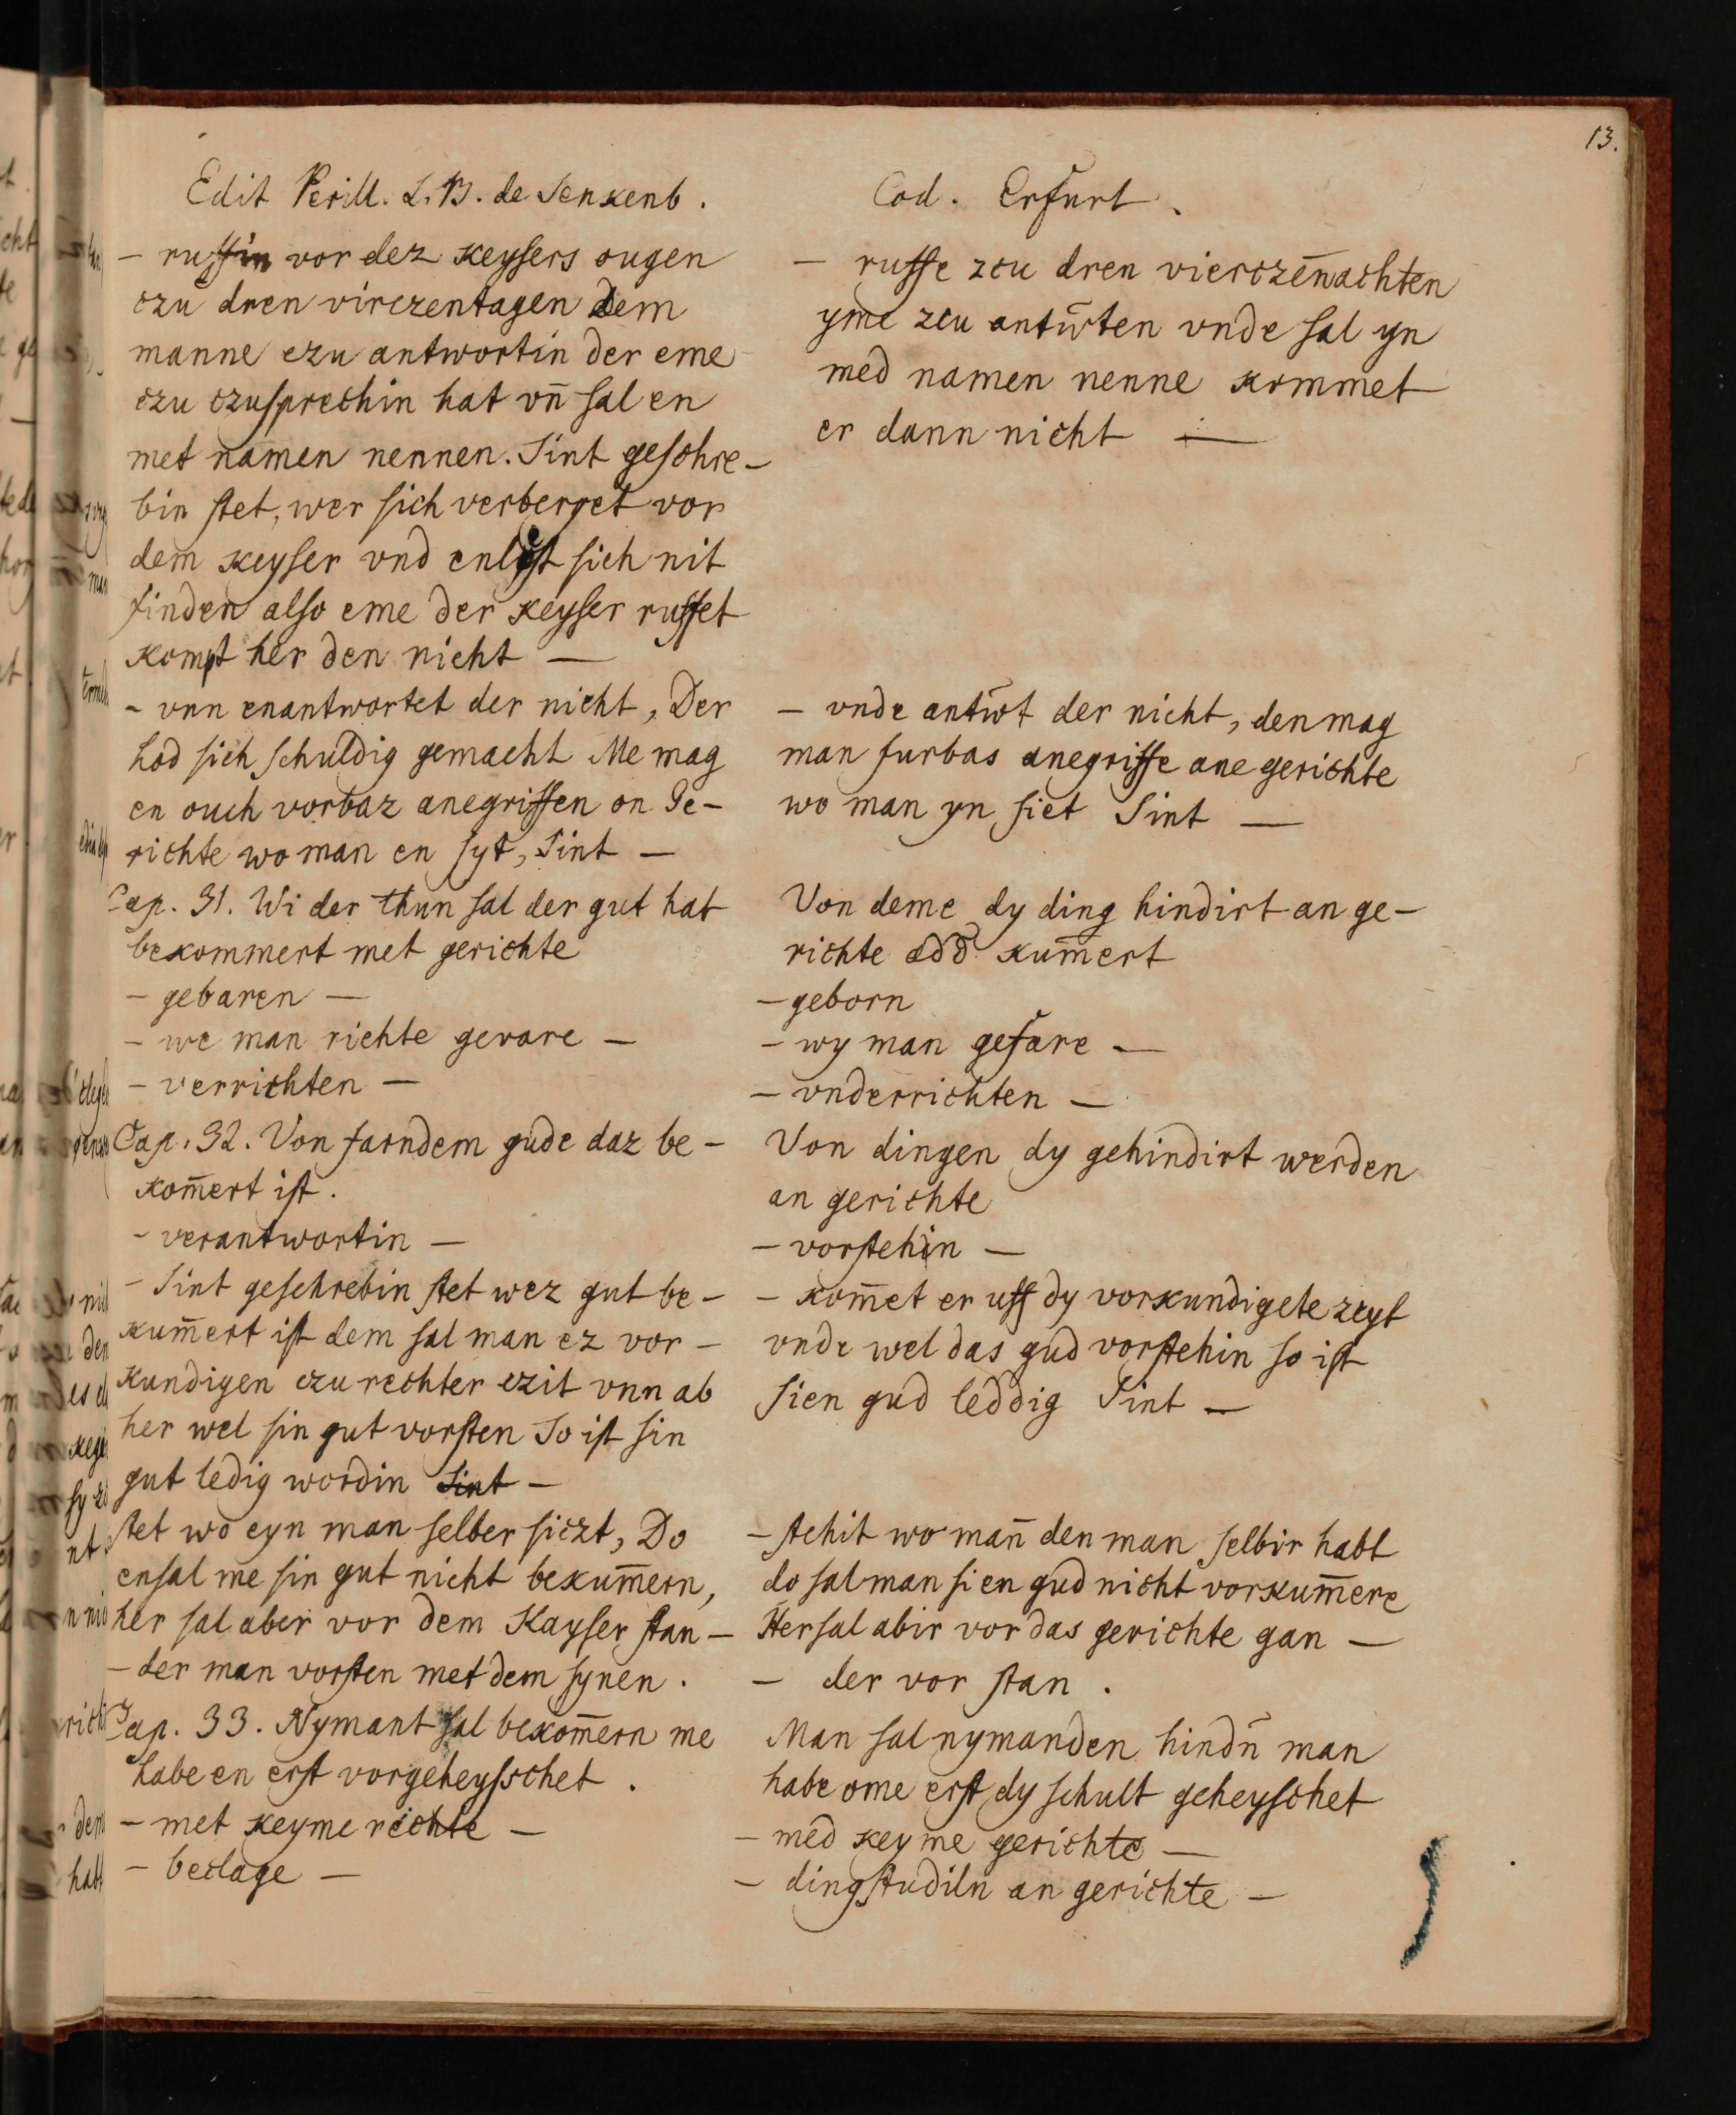 13.
Edit Perill. L. B. de Senkenb.
- ruffin vor dez keysers ougen
czu dren virczentagen dem
manne czu antwortin der eme
czu czusprechin hat vn̄ sal en
met namen nennen. Sint geschre-
bin stet, wer sich verberget vor
dem keyser vnd enlest sich nit
finden also eme der keyser ruffet
kompt her den nicht —
- vnn enantwortet der nicht, Der
hod sich schuldig gemacht Me mag
en ouch vorbaz anegriffen on Ge-
richte wo man en syt, Sint —
Cap. 31. Wi der thun sal der gut hat
bekommert met gerichte
- gebaren —
- we man richte gevare —
- verrichten —
Cap. 32. Von farndem gude daz be-
kom̄ert ist.
- verantwortin —
- Sint geschrebin stet wez gut be-
kum̄ert ist dem sal man ez vor-
kundigen czu rechter czit vnn ab
her wel sin gut vorsten So ist sin
gut ledig wordin Sint —
stet wo eyn man selber siczt, Do
ensal me sin gut nicht bekum̄ern,
her sal aber vor dem Kayser stan —
- der man vorsten met dem synen.
Cap. 33. Nymant sal bekom̄ern me
habe en erst vorgeheysschet.
- met keyme richte —
- beclage —
Cod. Erfurt.
- ruffe zcu dren vierczen̄achten
yme zcu antw̄ten vnde sal yn
med namen nenne kommet
er dann nicht —
- vnde antw̄t der nicht, den mag
man furbas anegriffe ane gerichte
wo man yn siet Sint —
Von deme dy ding hindirt an ge-
richte add kum̄ert
- geborn
- wy man gefare —
- vnderrichten —
Von dingen dy gehindirt werden
an gerichte
- vorstehin —
- kom̄et er uff dy vorkundigete zeyt
vnde wel das gud vorstehin so ist
sien gud leddig Sint —
- stehit wo man̄ den man selbir habt
do sal man sien gud nicht vorkum̄ere
Her sal abir vor das gerichte gan —
- der vor stan.
Man sal nymanden hindn̄ man
habe ome erst dy schult geheyschet
- med keyme gerichte —
- dingstudiln an gerichte —